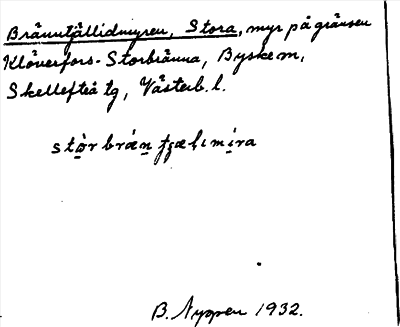 Brännfjällidmyren, Stora, myr på gränsen
Klöverfors-Storbränna, Byske m,
Skellefteå tg, Västerb. l.
stòr brán fjælımíra
B. Nyppen 1932.